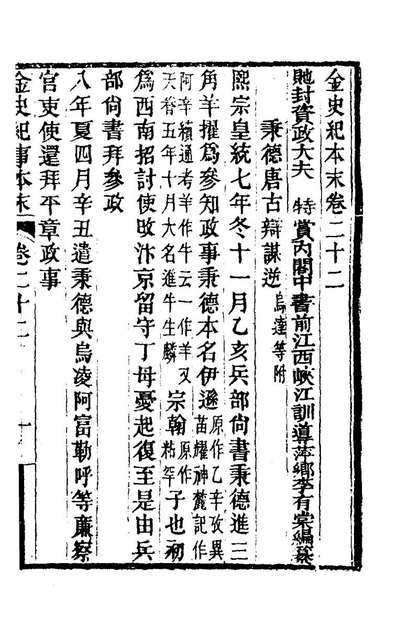 金史紀本末卷二十二
貤封資政大夫　特賞內閣中書前江西峽江訓導萍鄉李有棠編纂
秉德唐古辯謀逆烏達等附
熙宗皇統七年冬十一月乙亥兵部尚書秉德進三
角羊擢爲參知政事秉德本名伊遜原作乙辛攷異苗耀神麓記作
阿辛續通考羊作牛云一作羊又天春五年十月大名進牛生麟宗翰原作粘罕子也初
爲西南招討使改汴京留守丁母憂起復至是由兵
部尚書拜參政
八年夏四月辛丑遣秉德與烏凌阿富勒呼等廉察
官吏使還拜平章政事
金史紀事本末
卷二十二
一